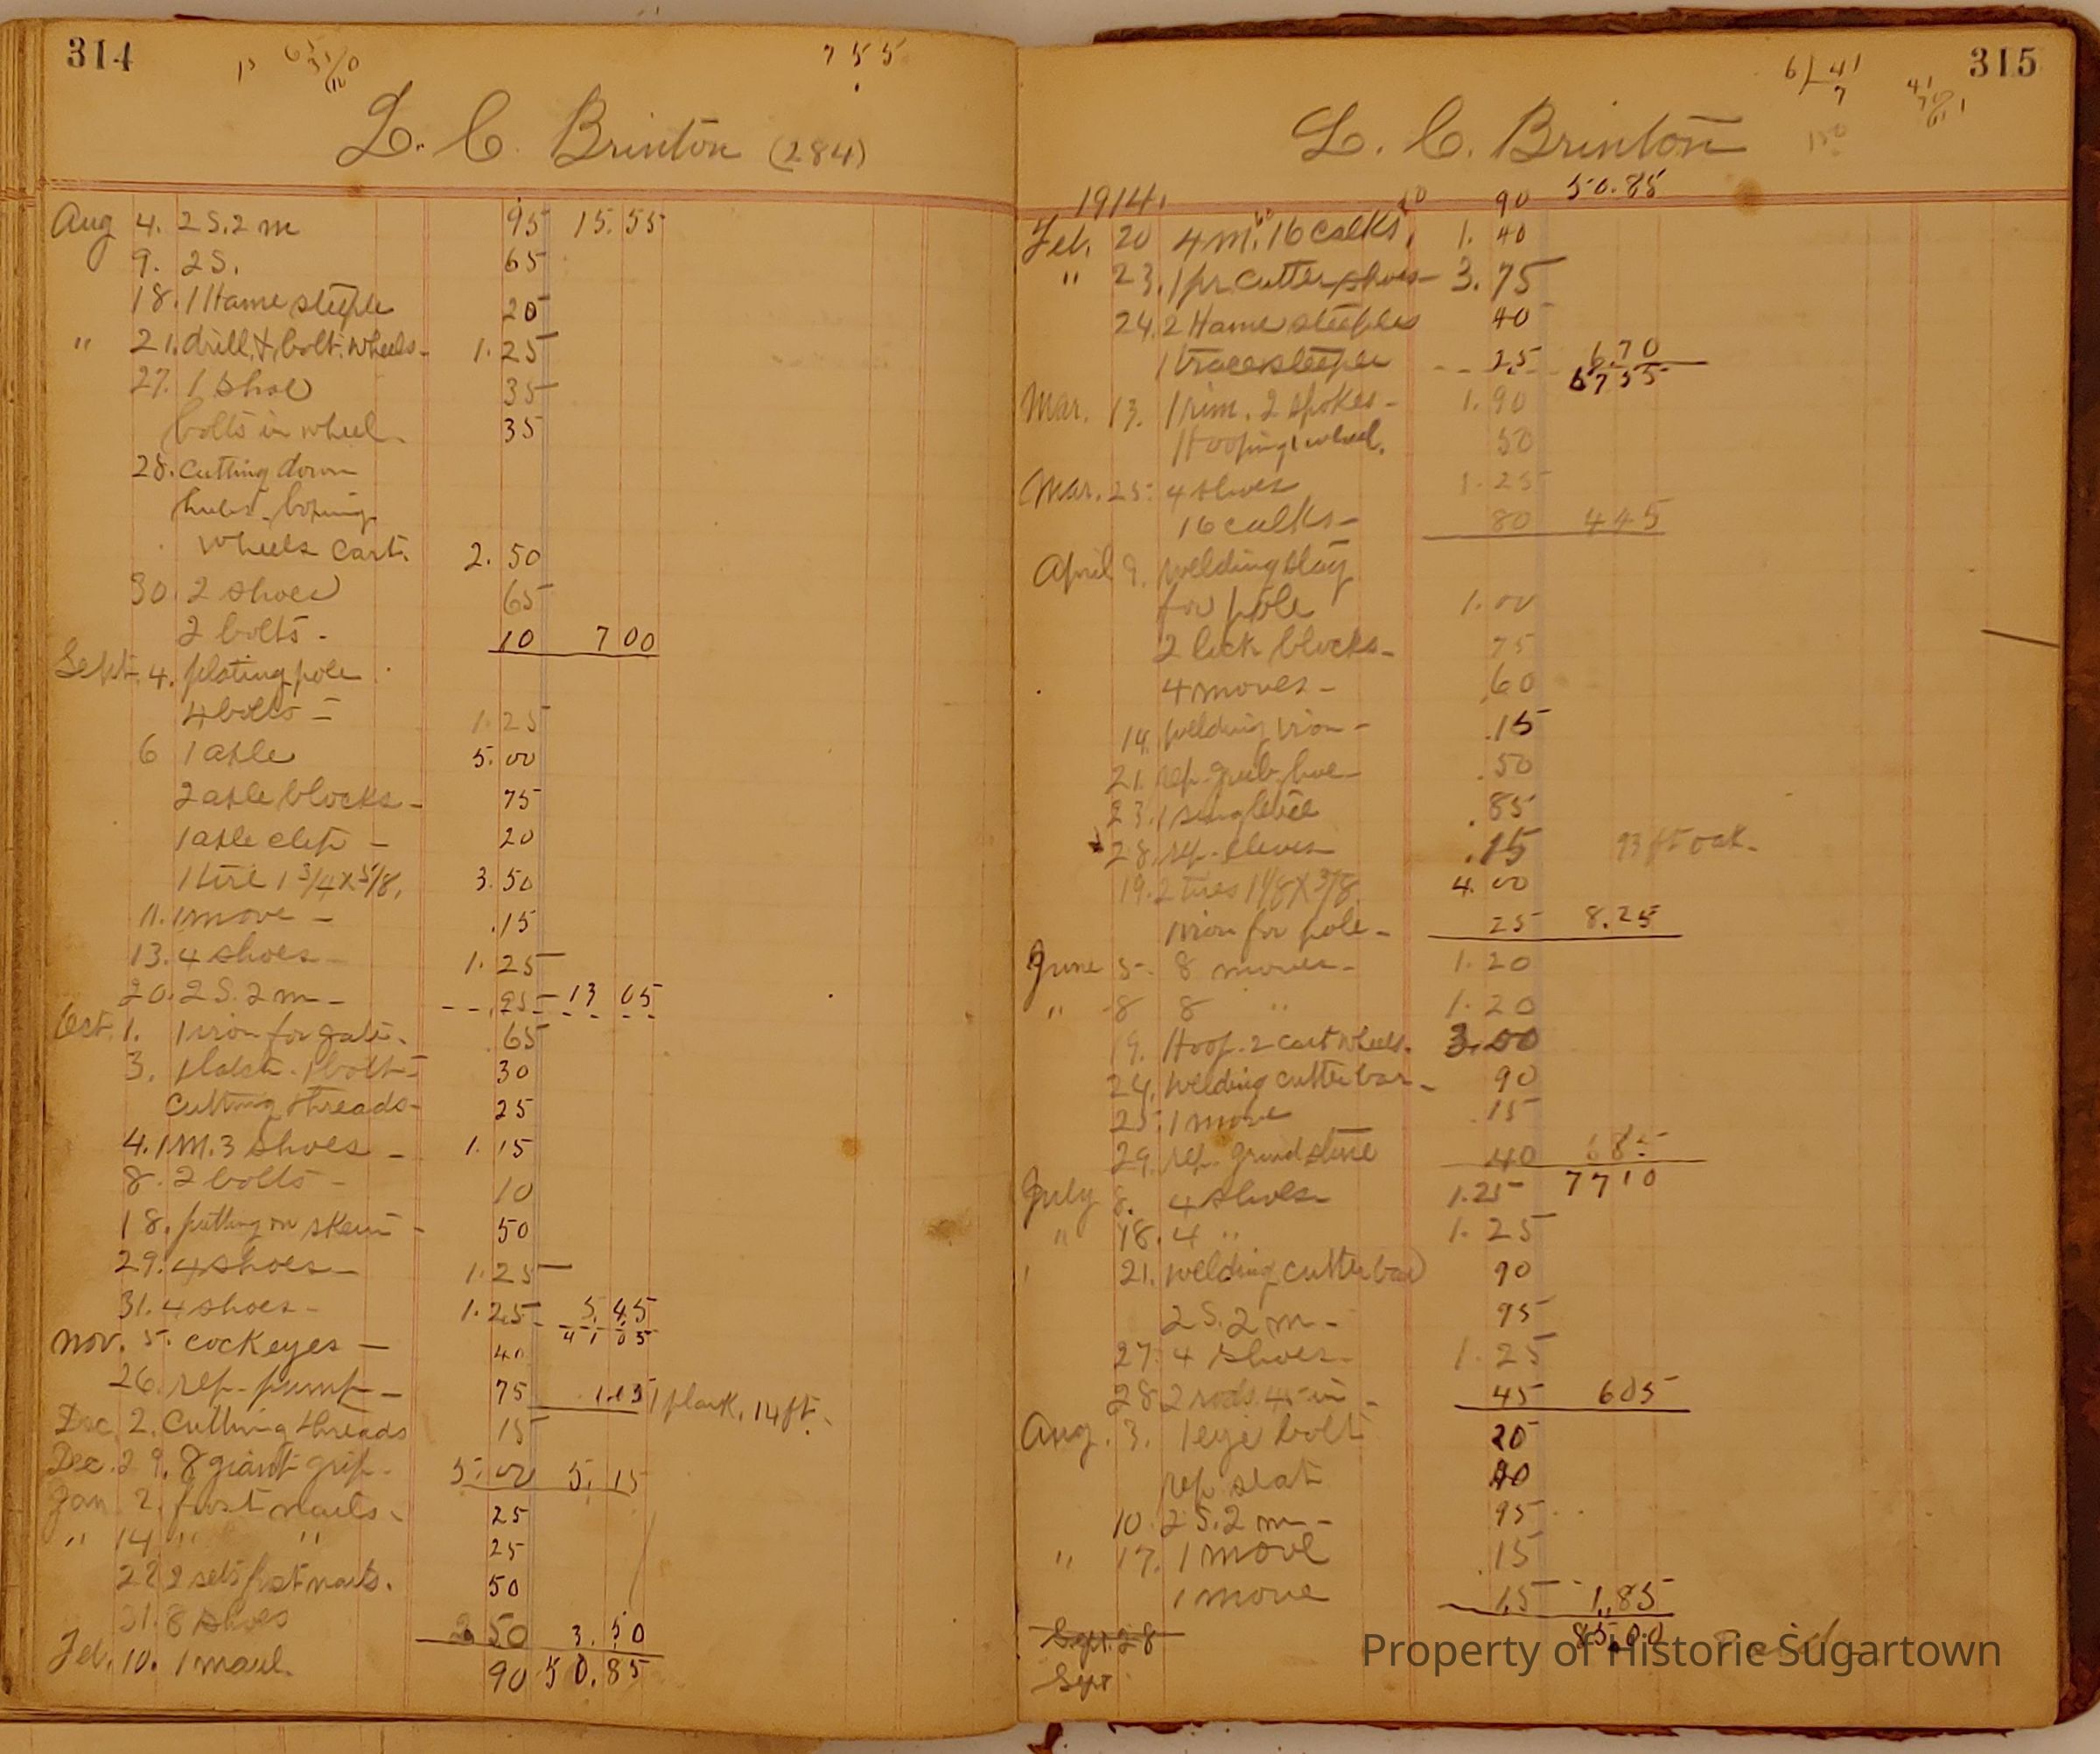 314
7 5 5
L. C. Brinton (284)
Aug 4. 2 S. 2 m 95 15.55
9. 2 S. 65
18. 1 Hame steeple 20
" 21. drill, & bolt. wheels - 1.25
27. 1 shoe 35
bolts in wheel. 35
28. Cutting down
hubs - boxing
wheels cart. 2.50
30. 2 shoes 65
2 bolts - 10 7 00
Sept. 4. plating pole
4 bolts - 1.25
6 1 axle 5.00
2 axle blocks - 75
1 axle clip - 20
1 tire 1 3/4 x 5/8. 3.50
11. 1 move - .15
13. 4 shoes - 1.25
20. 2 S. 2 m - 95 13 05
Oct. 1. 1 iron for gate. 65
3. 1 bolt - 30
Cutting threads - 25
4. 1 m. 3 shoes - 1.15
8. 2 bolts - 10
18. putting on skein - 50
29. 4 shoes - 1.25
31. 4 shoes - 1.25 5.45
41 05
Nov. 5. cockeyes - 40
26. rep. pump - 75 1.15 1 plank, 14 ft.
Dec. 2. Cutting threads 15
Dec. 29. 8 giant grip - 5.00 5.15
Jan. 2. frost nails - 25
" 14 " " 25
22 2 sets frost nails. 50
31. 8 shoes 2 50 3.50
Feb. 10. 1 maul. 90 50.85
315
6/41
7
L. C. Brinton
1914. 90 50.85
Feb. 20 4 m. 16 calks. 1.40
" 23. 1 pr. cutter shoes - 3.75
24. 2 Hame steeples 40
1 trace steeple 25 6.70
57 55
Mar. 13. 1 rim. 2 spokes - 1.90
Hooping 1 wheel. 50
Mar. 25. 4 shoes 1.25
16 calks - 80 4 45
April 9. welding stay
for pole 1.00
2 lock blocks - 75
4 moves - .60
14. welding iron - .15
21. rep. grub hoe - .50
23. 1 singletree .85
28. rep. clevis .15 93 ft oak.
19. 2 tires 1 1/8 x 3/8. 4.00
1 iron for pole - 25 8.25
June 5. 8 moves - 1.20
" 8 8 " 1.20
19. Hoop. 2 cart wheels. 3.00
24. welding cutter bar - 90
25. 1 move .15
29. rep. grindstone 40 6 85
July 8. 4 shoes - 1.25 77 10
" 18. 4 " 1.25
21. welding cutter bar 90
2 S. 2 m - 95
27. 4 shoes - 1.25
28 2 rods 45 in - 45 6 05
Aug. 3. 1 eye bolt 20
rep seat 40
10. 2 S. 2 m - 95
" 17. 1 move .15
1 move .15 1.85
Sept. 28 85.00
Sept
Property of Historic Sugartown